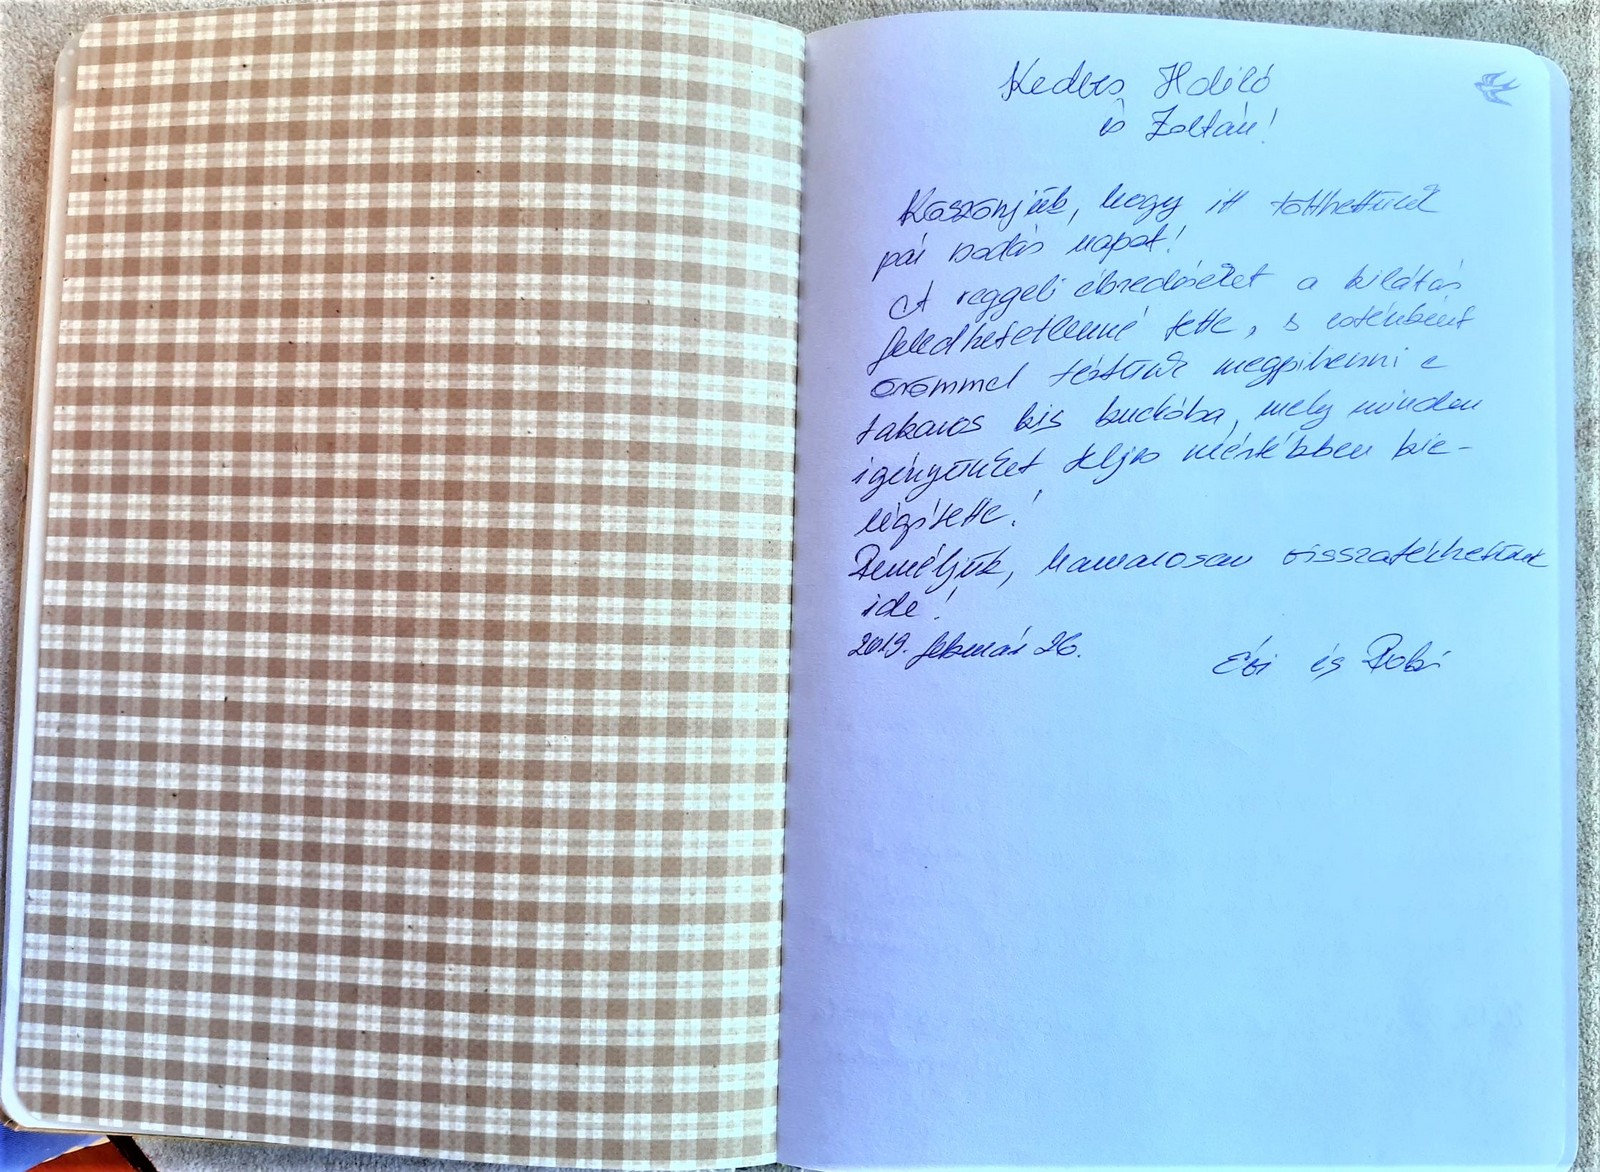 Kedves Holló
és Zoltán!
Köszönjük, hogy itt tölthettünk
pár csodás napot!
A reggeli ébredéseket a kilátás
feledhetetlenné tette, s esténként
örömmel tértünk megpihenni e
takaros kis kuckóba, mely minden
igényünket teljes mértékben kie-
légítette!
Reméljük, hamarosan visszatérhetünk
ide!
2019. február 26.
Évi és Robi